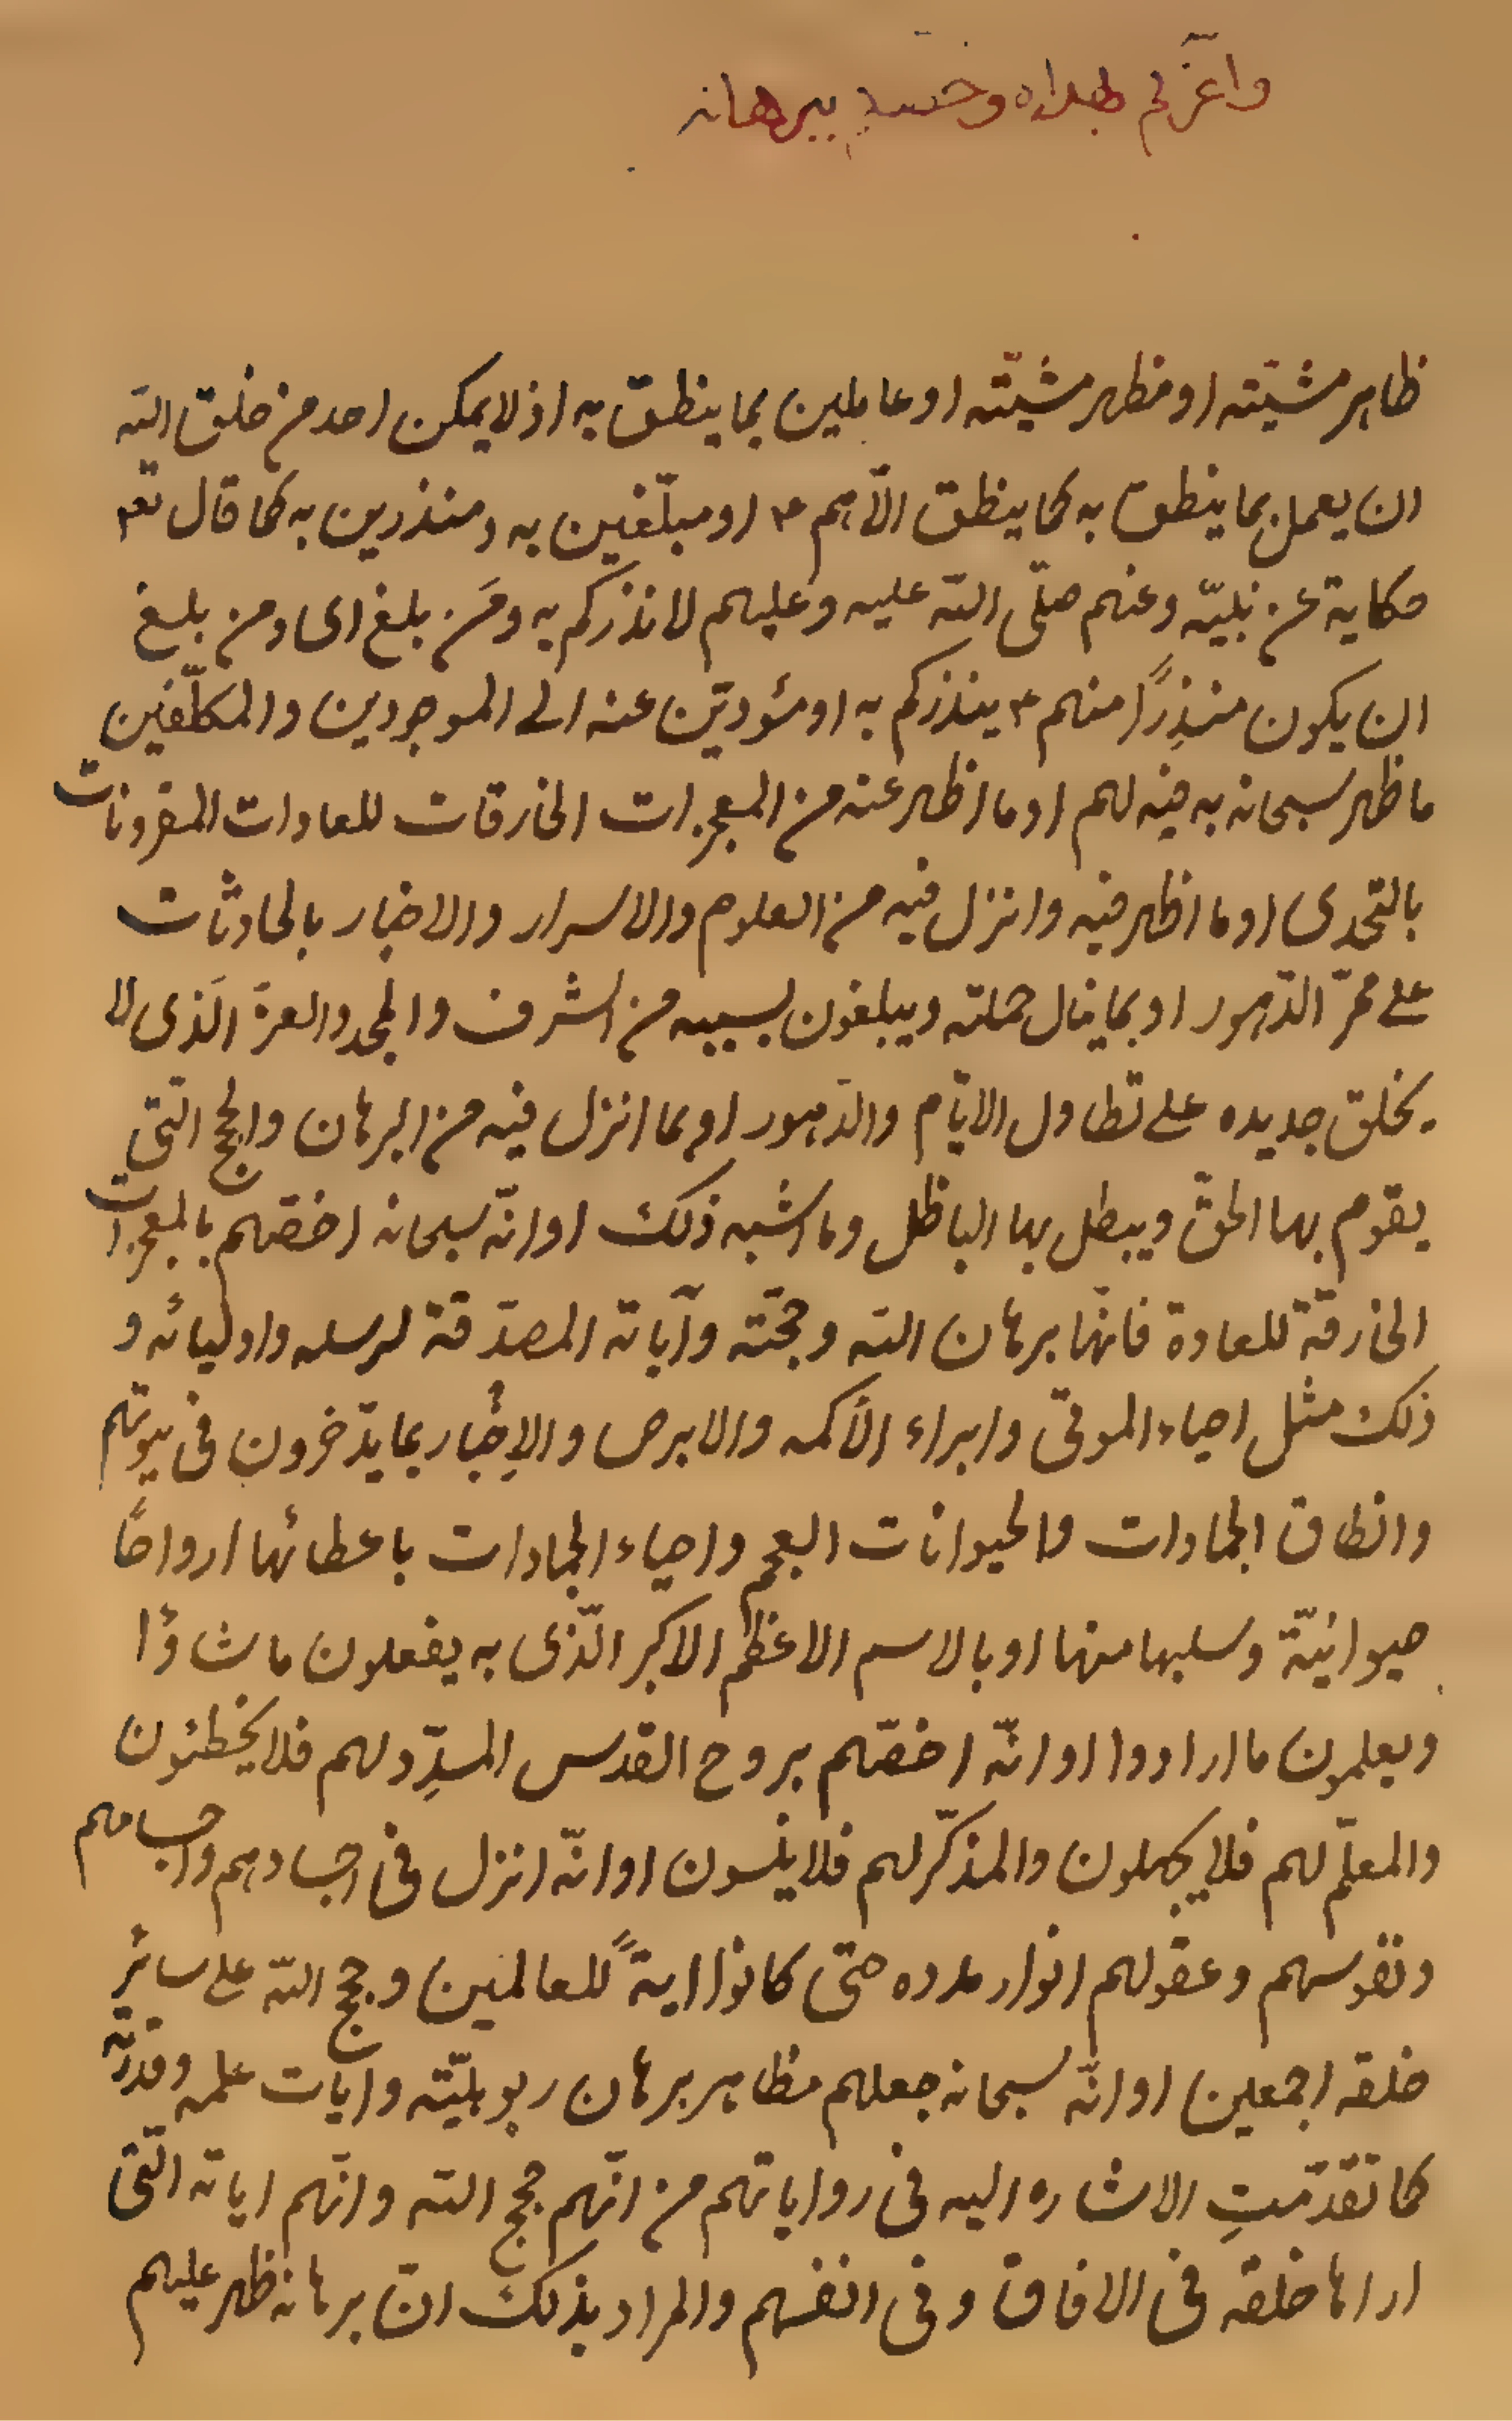 واعزكم بهداه وخصكم ببرهانه
ظاهر مشيّته او مظهر مشيّته او عاملين بما ينطق به اذ لا يمكن احد من خلق الله
ان يعمل بما ينطق به كما ينطق الّا هم ع او مبلّغين به ومنذرين به كما قال تعم
حكاية عن نبيّه وعنهم صلّى الله عليه وعليهم لانذركم به ومَن بلغ اى ومن بلغ
ان يكون منذِرًا منهم ع ينذركم به او مئودّين عنه الى الموجودين والمكلّفين
ما ظهر سبحانه به فيه لهم او ما اظهر عنه من المعجزات الخارقات للعادات المقرونات
بالتحدى او ما اظهر فيه وانزل فيه من العلوم والاسرار والاخبار بالحادثات
على ممرّ الدّهور او بما ينال حملته ويبلغون بسببه من الشرف والمجد والعزة الّذى لا
يخلق جديده على تطاول الايّام والدّهور او بما انزل فيه من البرهان والحجج الّتى
يقوم بها الحقّ ويبطل بها الباطل وما اشبه ذلك او انّه سبحانه اختصّهم بالمعجزات
الخارقة للعادة فانّها برهان الله وحجّته وآياته المصدّقة لرسله واوليائه و
ذلك مثل احياء الموتى وابراء الأكمه والابرص والاِخبار بما يدّخرون فى بيوتهم
وانطاق الجمادات والحيوانات العجم واحياء الجمادات باعطائها ارواحًا
حيوانيّة وسلبها منها او بالاسم الاعظم الاكبر الّذى به يفعلون ما شاؤا
ويعلمون ما ارادوا او انّه اختصّهم بروح القدس المسدِّد لهم فلا يخطئون
والمعلّم لهم فلا يجهلون والمذكّر لهم فلا ينسون او انّه انزل فى اجسادهم واجسامهم
ونفوسهم وعقولهم انوار مدده حتّى كانوا ايةً للعالمين وحجج الله على سائر
خلقه اجمعين او انّه سبحانه جعلهم مظاهر برهان ربوبيّته وايات علمه وقدرته
كما تقدّمتِ الاشاره اليه فى رواياتهم من انّهم حجج الله وانّهم اياته الّتى
اراها خلقه فى الافاق وفى انفسهم والمراد بذلك انّ برهانه ظهر عليهم